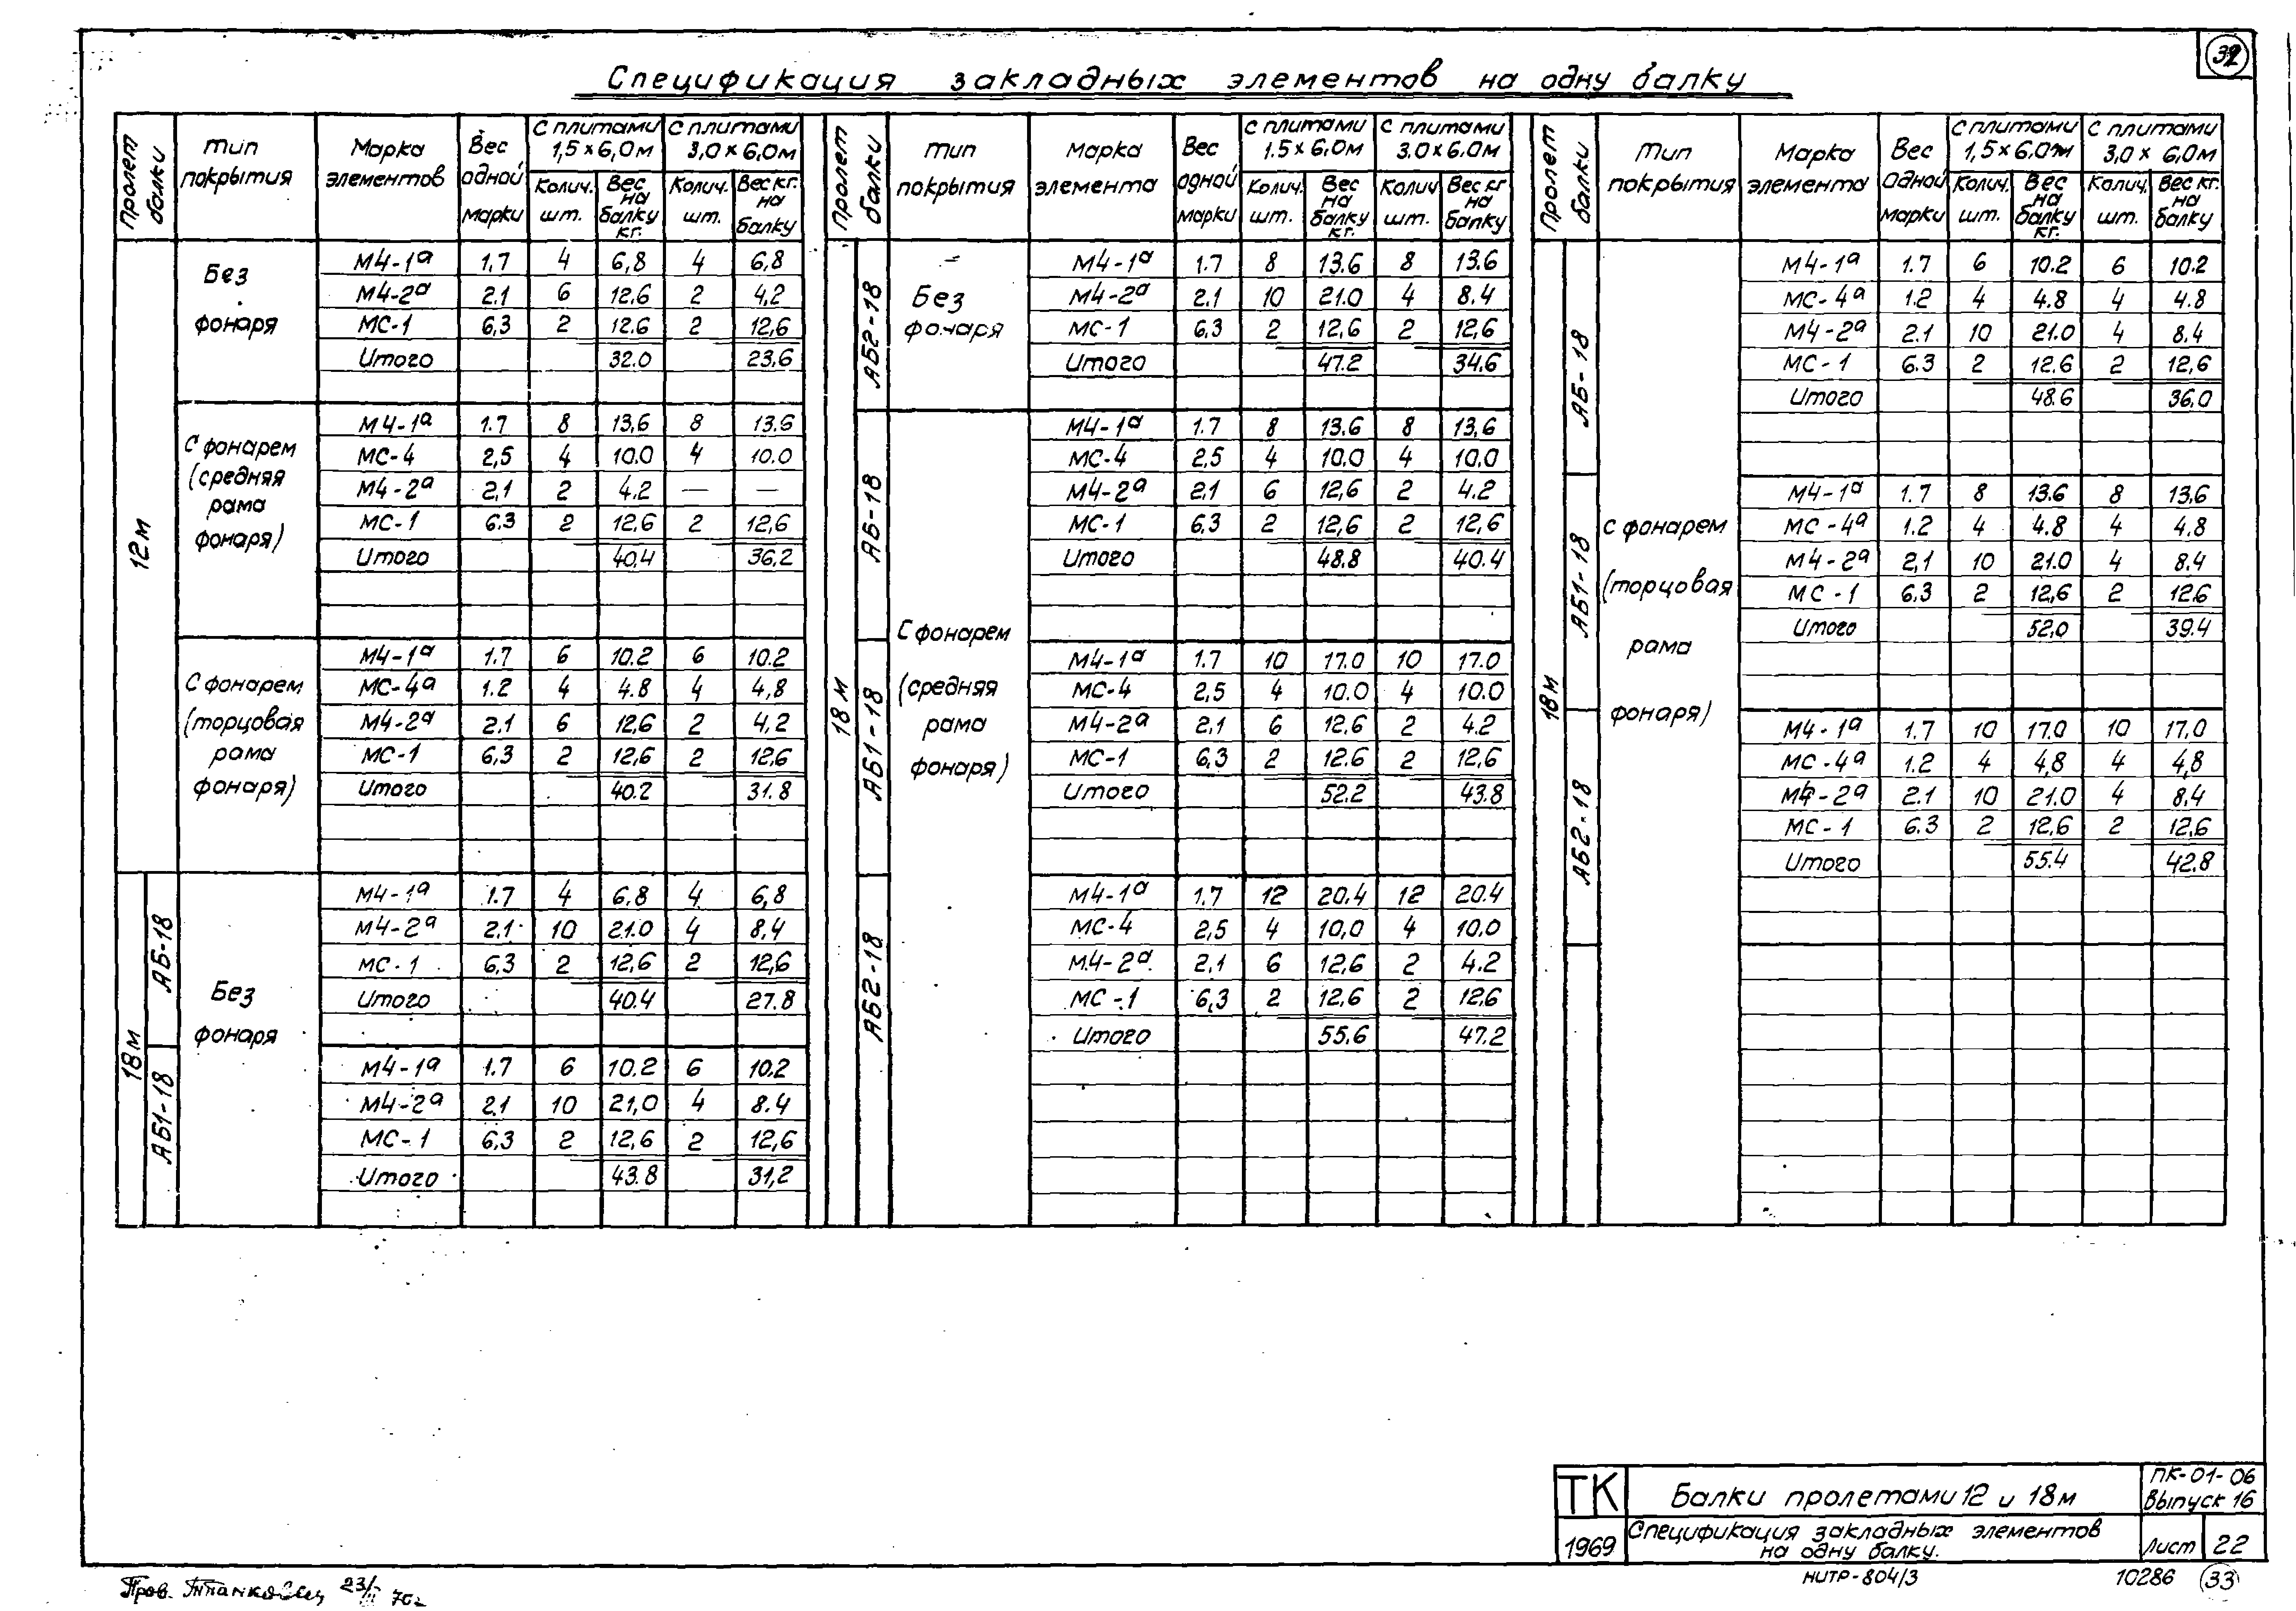 32
Спецификация закладных элементов на одну балку
Пролет балки | Тип покрытия | Марка элементов | Вес одной марки | С плитами 1,5×6,0м | С плитами 3,0×6,0м
Колич. шт. | Вес на балку кг. | Колич. шт. | Вес кг. на балку
12м
Без фонаря
М4-1а 1.7 4 6,8 4 6,8
М4-2а 2.1 6 12.6 2 4,2
МС-1 6,3 2 12.6 2 12,6
Итого 32.0 23,6
С фонарем (средняя рама фонаря)
М4-1а 1.7 8 13,6 8 13.6
МС-4 2,5 4 10.0 4 10.0
М4-2а 2,1 2 4.2 — —
МС-1 6.3 2 12,6 2 12,6
Итого 40,4 36,2
С фонарем (торцовая рама фонаря)
М4-1а 1.7 6 10.2 6 10.2
МС-4а 1.2 4 4.8 4 4,8
М4-2а 2.1 6 12,6 2 4,2
МС-1 6,3 2 12,6 2 12,6
Итого 40.2 31.8
18м
АБ-18
Без фонаря
М4-1а 1.7 4 6,8 4 6,8
М4-2а 2.1 10 21.0 4 8,4
МС-1 6,3 2 12,6 2 12,6
Итого 40.4 27.8
АБ1-18
М4-1а 1.7 6 10.2 6 10.2
М4-2а 2.1 10 21,0 4 8.4
МС-1 6,3 2 12,6 2 12,6
Итого 43.8 31,2
Пролет балки | Тип покрытия | Марка элемента | Вес одной марки | С плитами 1.5×6,0м | С плитами 3.0×6.0м
Колич. шт. | Вес на балку кг. | Колич шт. | Вес кг на балку
18м
АБ2-18
Без фонаря
М4-1а 1.7 8 13.6 8 13.6
М4-2а 2.1 10 21.0 4 8.4
МС-1 6,3 2 12,6 2 12,6
Итого 47.2 34.6
С фонарем (средняя рама фонаря)
АБ-18
М4-1а 1.7 8 13.6 8 13,6
МС-4 2,5 4 10,0 4 10,0
М4-2а 2.1 6 12,6 2 4.2
МС-1 6,3 2 12,6 2 12,6
Итого 48.8 40.4
АБ1-18
М4-1а 1.7 10 17.0 10 17.0
МС-4 2,5 4 10.0 4 10.0
М4-2а 2,1 6 12.6 2 4.2
МС-1 6,3 2 12.6 2 12,6
Итого 52.2 43.8
АБ2-18
М4-1а 1.7 12 20.4 12 20.4
МС-4 2,5 4 10,0 4 10.0
М4-2а 2,1 6 12,6 2 4.2
МС-1 6,3 2 12,6 2 12,6
Итого 55.6 47.2
Пролет балки | Тип покрытия | Марка элемента | Вес одной марки | С плитами 1,5×6.0м | С плитами 3,0×6,0м
Колич. шт. | Вес на балку кг. | Колич. шт. | Вес кг. на балку
18м
с фонарем (торцовая рама фонаря)
АБ-18
М4-1а 1.7 6 10.2 6 10.2
МС-4а 1.2 4 4.8 4 4.8
М4-2а 2.1 10 21.0 4 8.4
МС-1 6.3 2 12.6 2 12,6
Итого 48.6 36,0
АБ1-18
М4-1а 1.7 8 13.6 8 13.6
МС-4а 1.2 4 4.8 4 4,8
М4-2а 2,1 10 21.0 4 8.4
МС-1 6.3 2 12,6 2 12.6
Итого 52,0 39.4
АБ2-18
М4-1а 1.7 10 17.0 10 17,0
МС-4а 1.2 4 4,8 4 4,8
М4-2а 2.1 10 21.0 4 8,4
МС-1 6.3 2 12,6 2 12,6
Итого 55.4 42.8
ТК
1969
Балки пролетами 12 и 18м
Спецификация закладных элементов
на одну балку.
ПК-01-06
Выпуск 16
Лист 22
НИТР-804/3
10286
33
Пров.